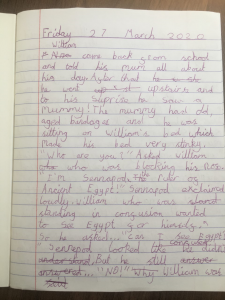 Friday 27 March 2020
William
came back from school
and told his mum all about
his day. After that he
he went upstairs and
to his suprise to saw a
Mummy! The mummy had old
aged bindages and he was
sitting on William's bed which
made his bed very stinky.
"Who are you?" Asked William
who was blocking his nose.
I'm Sennapod, ruler of
Ancient Egypt!" Sennapod exclaimed
loudly. William who was
standing in confusion wanted
to see Egypt for himself."
he asked... Can I see Egypt?
Sennapod looked like he didn't
But he still
"NO!" Why William was